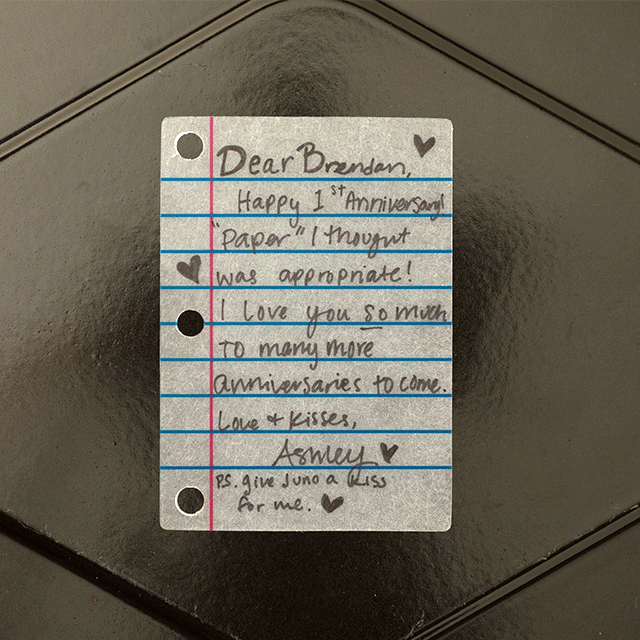 Dear Brendan,
Happy 1st Anniversary!
"Paper" I thought
was appropriate!
I love you so much
To many more
anniversaries to come.
Love + Kisses,
Ashley
PS. give Juno a kiss
for me.